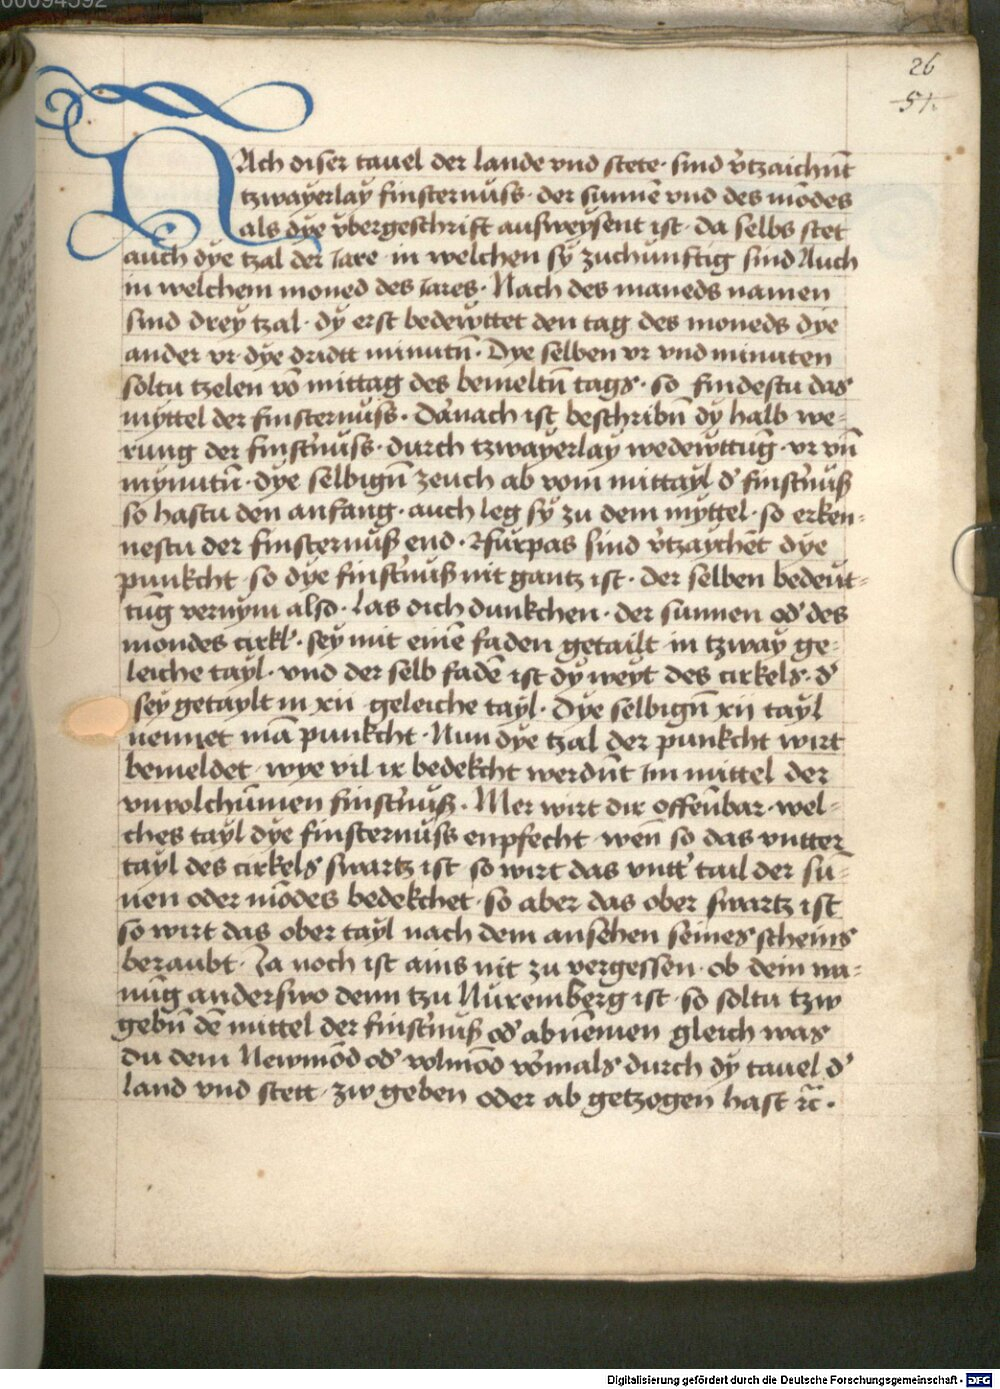 00094592
26
51.
NAch diser tauel der lande vnd stete · sind v̄tzaichnt̄
tzwayerlay finsternuss · der sunnē vnd des mōdes
als dye v̈bergeschrift ausweysent ist · da selbs stet
auch dye tzal der Iare · in welchen sy zuchunftig sind Auch
in welchem moned des iares · Nach des maneds namen
sind drey tzal · dy erst bedewttet den tag des moneds dye
ander vr dye dridtt minutn̄ · Dye selben vr vnd minuten
soltu tzelen vō mittag des bemeltn̄ tags · so findestu das
myttel der finsternuss · Darnach ist beschribn̄ dy halb we-
rung der finst'nuss · durch tzwayerlay wedewttūg · vr vn̄
mynutn̄ · dye selbign̄ zeuch ab vom mittayl d' finst'nuß
so hastu den anfang · auch leg sy zu dem myttel · so erken-
nestu der finsternuß end · furpas sind v'tzaychēt dye
punkcht so dye finst'nuß nit gantz ist · der selben bedeut-
tūg vernym also · Las dich dunkchen · der sunnen od' des
mondes cirkl' · sey mit einē faden getailt in tzway ge-
leiche tayl · vnd der selb fadē ist dy weyt des cirkels · d'
sey getaylt in xii geleiche tayl · Dye selbign̄ xij tayl
nennet mā punkcht · Nun dye tzal der punkcht wirt
bemeldet wye vil ir bedekcht werdūt Im mittel der
vnvolchūmen finst'nuß · Mer wirt dir offēnbar · wel-
ches tayl dye finsternuss enpfecht wen̄ so das vntter
tayl des cirkels swartz ist so wirt das vntt' tail der sū-
nen oder mōdes bedekchet · so aber das ober swartz ist
so wirt das ober tayl nach dem ansehen seines scheins
beraubt · Ja noch ist ains nit zu vergessen · ob dein ma-
nūg anderswo denn tzu Nüremberg ist · so soltu tzw
gebn̄ dē mittel der finst'nuß od' abnēmen gleich was
du dem Newmōd od' volmōd vōrmals durch dy tauel d'
land vnd stett · zw geben oder ab getzogen hast rc̄ ·
Digitalisierung gefördert durch die Deutsche Forschungsgemeinschaft - DFG